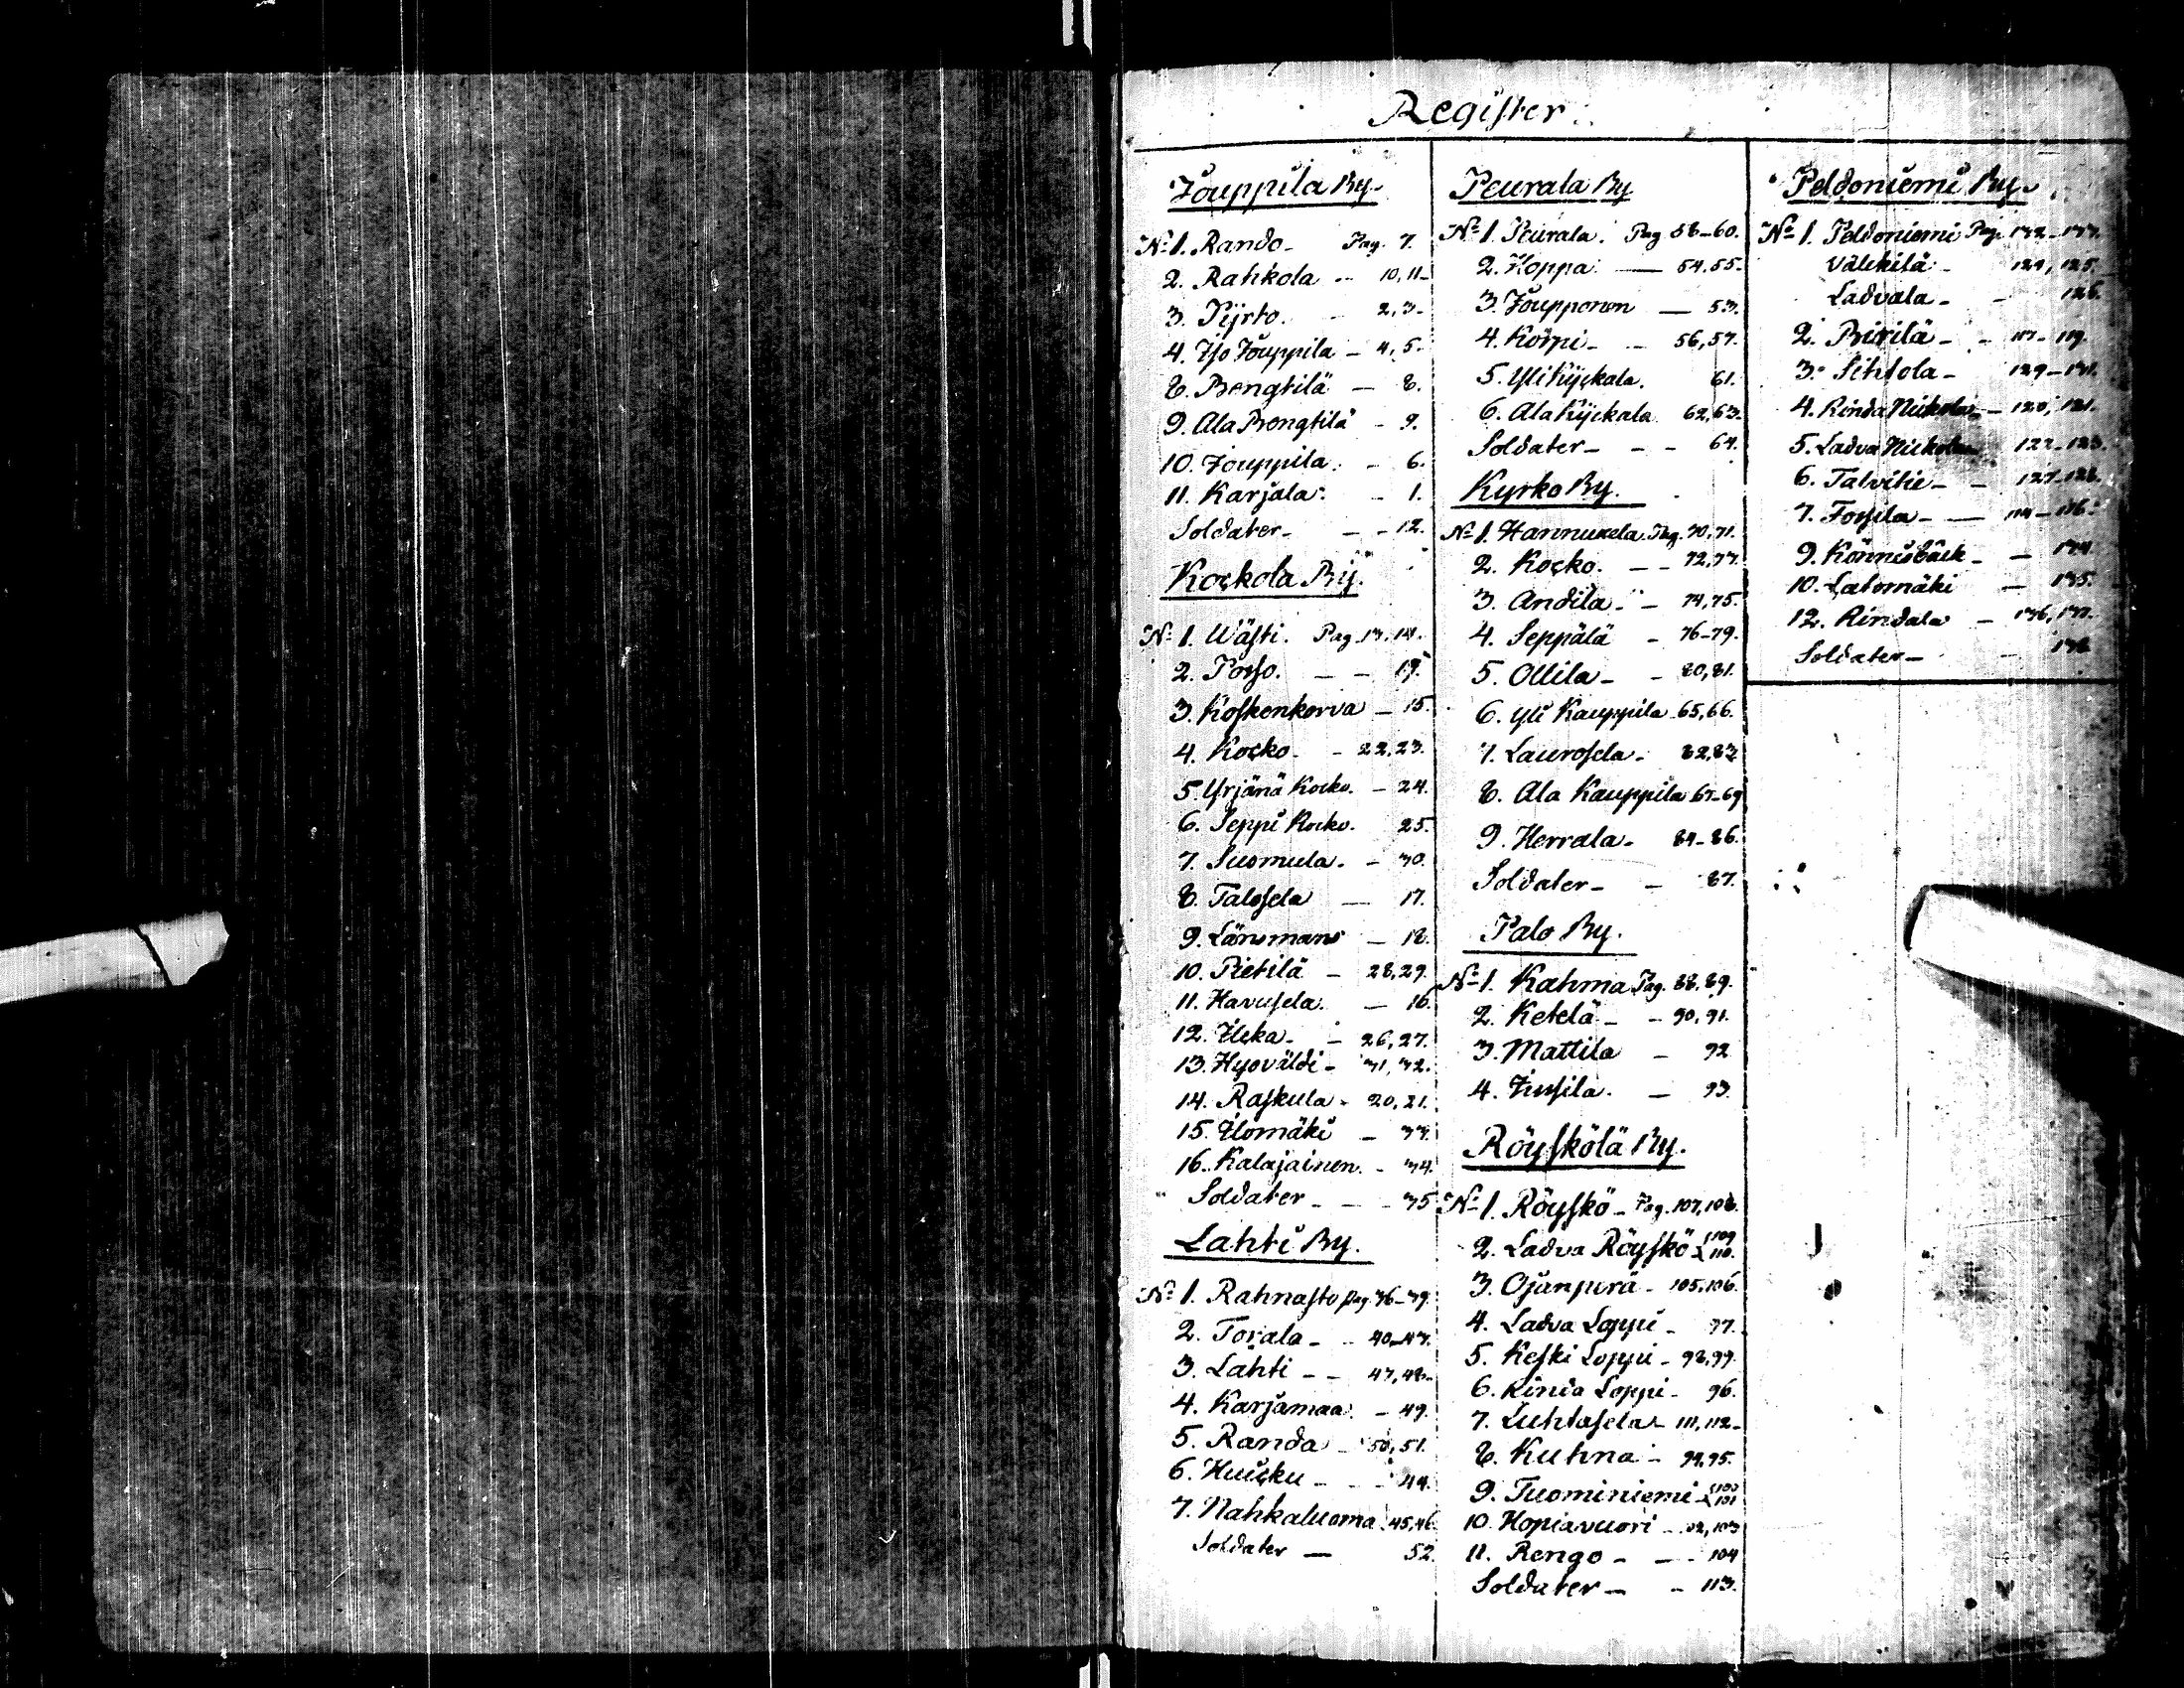 Register
Jouppila By.
No 1. Rando - Pag. 7.
2. Rahkola - 10, 11.
3. Pyrto. - 2, 3.
4. Iso Jouppila - 4, 5.
8. Bengtilä - 8.
9. Ala Bengtilä - 9.
10. Jouppila. - 6.
11. Karjala. - 1.
Soldater - - 12.
Kockola By.
No 1. Wästi. Pag. 13, 14.
2. Porso. - - 19.
3. Koskenkorva - 15.
4. Kocko. - 22, 23.
5. Yrjänä Kocko. - 24.
6. Seppi Kocko. 25.
7. Suomula. - 30.
8. Talosela - 17.
9. Länsmans - 18.
10. Pietilä - 28, 29.
11. Havusela. - 16.
12. Ilkka - - 26, 27.
13. Hyoväldi - 31, 32.
14. Raskula - 20, 21.
15. Ilomäki - 33.
16. Kalajainen. - 34.
Soldater - - 35
Lahti By.
No 1. Rahnasto pag. 36-39.
2. Torala - - 40-43.
3. Lahti - - 47, 48.
4. Karjamaa. - 49.
5. Randa - 50, 51.
6. Huicku - - 44.
7. Nahkaluoma 45, 46.
Soldater - 52.
Peurala By
No 1. Peurala. Pag 58-60.
2. Hoppa. - 54, 55.
3. Jouppornen - 53.
4. Korpi - - 56, 57.
5. Yli Kyckala. 61.
6. Ala Kyckala 62, 63.
Soldater - - - 64.
Kyrko By.
No 1. Hannuxela. Pag. 70, 71.
2. Kocko. - - 72, 73.
3. Andila - - 74, 75.
4. Seppälä - 76-79.
5. Ollila - - 80, 81.
6. Yli Kauppila 65, 66.
7. Laurosela - 82, 83.
8. Ala Kauppila 67-69
9. Herrala - 84-86.
Soldater - - 87.
Palo By.
No 1. Kahma Pag. 88, 89.
2. Ketelä - - 90, 91.
3. Mattila - 92
4. Jussila. - 93.
Röyskölä By.
No 1. Röyskö - Pag. 107, 108.
2. Ladva Röyskö 109 110.
3. Ojanperä - 105, 106.
4. Ladva Loppi - 97.
5. Keski Loppi - 98, 99.
6. Rinda Loppi - 96.
7. Luhtasela - 111, 112.
8. Kuhna - 94, 95.
9. Tuominiemi - 100 101
10. Hopiavuori - 102, 103
11. Rengo - - - 104
Soldater - - 113.
Peldoniemi By.
No 1. Peldoniemi Pag. 132-133.
Välikilä - 124, 125.
Ladvala - - 126.
2. Pirilä - - 117-119.
3. Sihtola - 129-131.
4. Rinda Nickola - 120, 121.
5. Ladva Nickola 122-123.
6. Talvitie - - 127-128.
7. Fossila - - 114-116.
9. Könnisback - - 134
10. Latomäki - 135.
12. Rindala - 136, 137.
Soldater - - 138